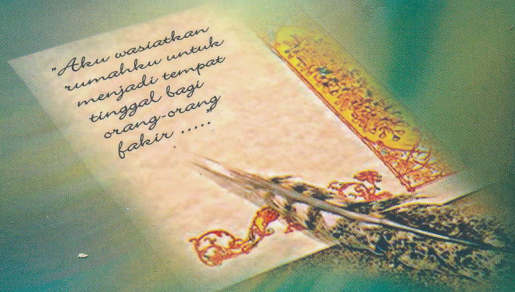 "Aku wasiatkan
rumahku untuk
menjadi tempat
tinggal bagi
orang-orang
fakir ....."